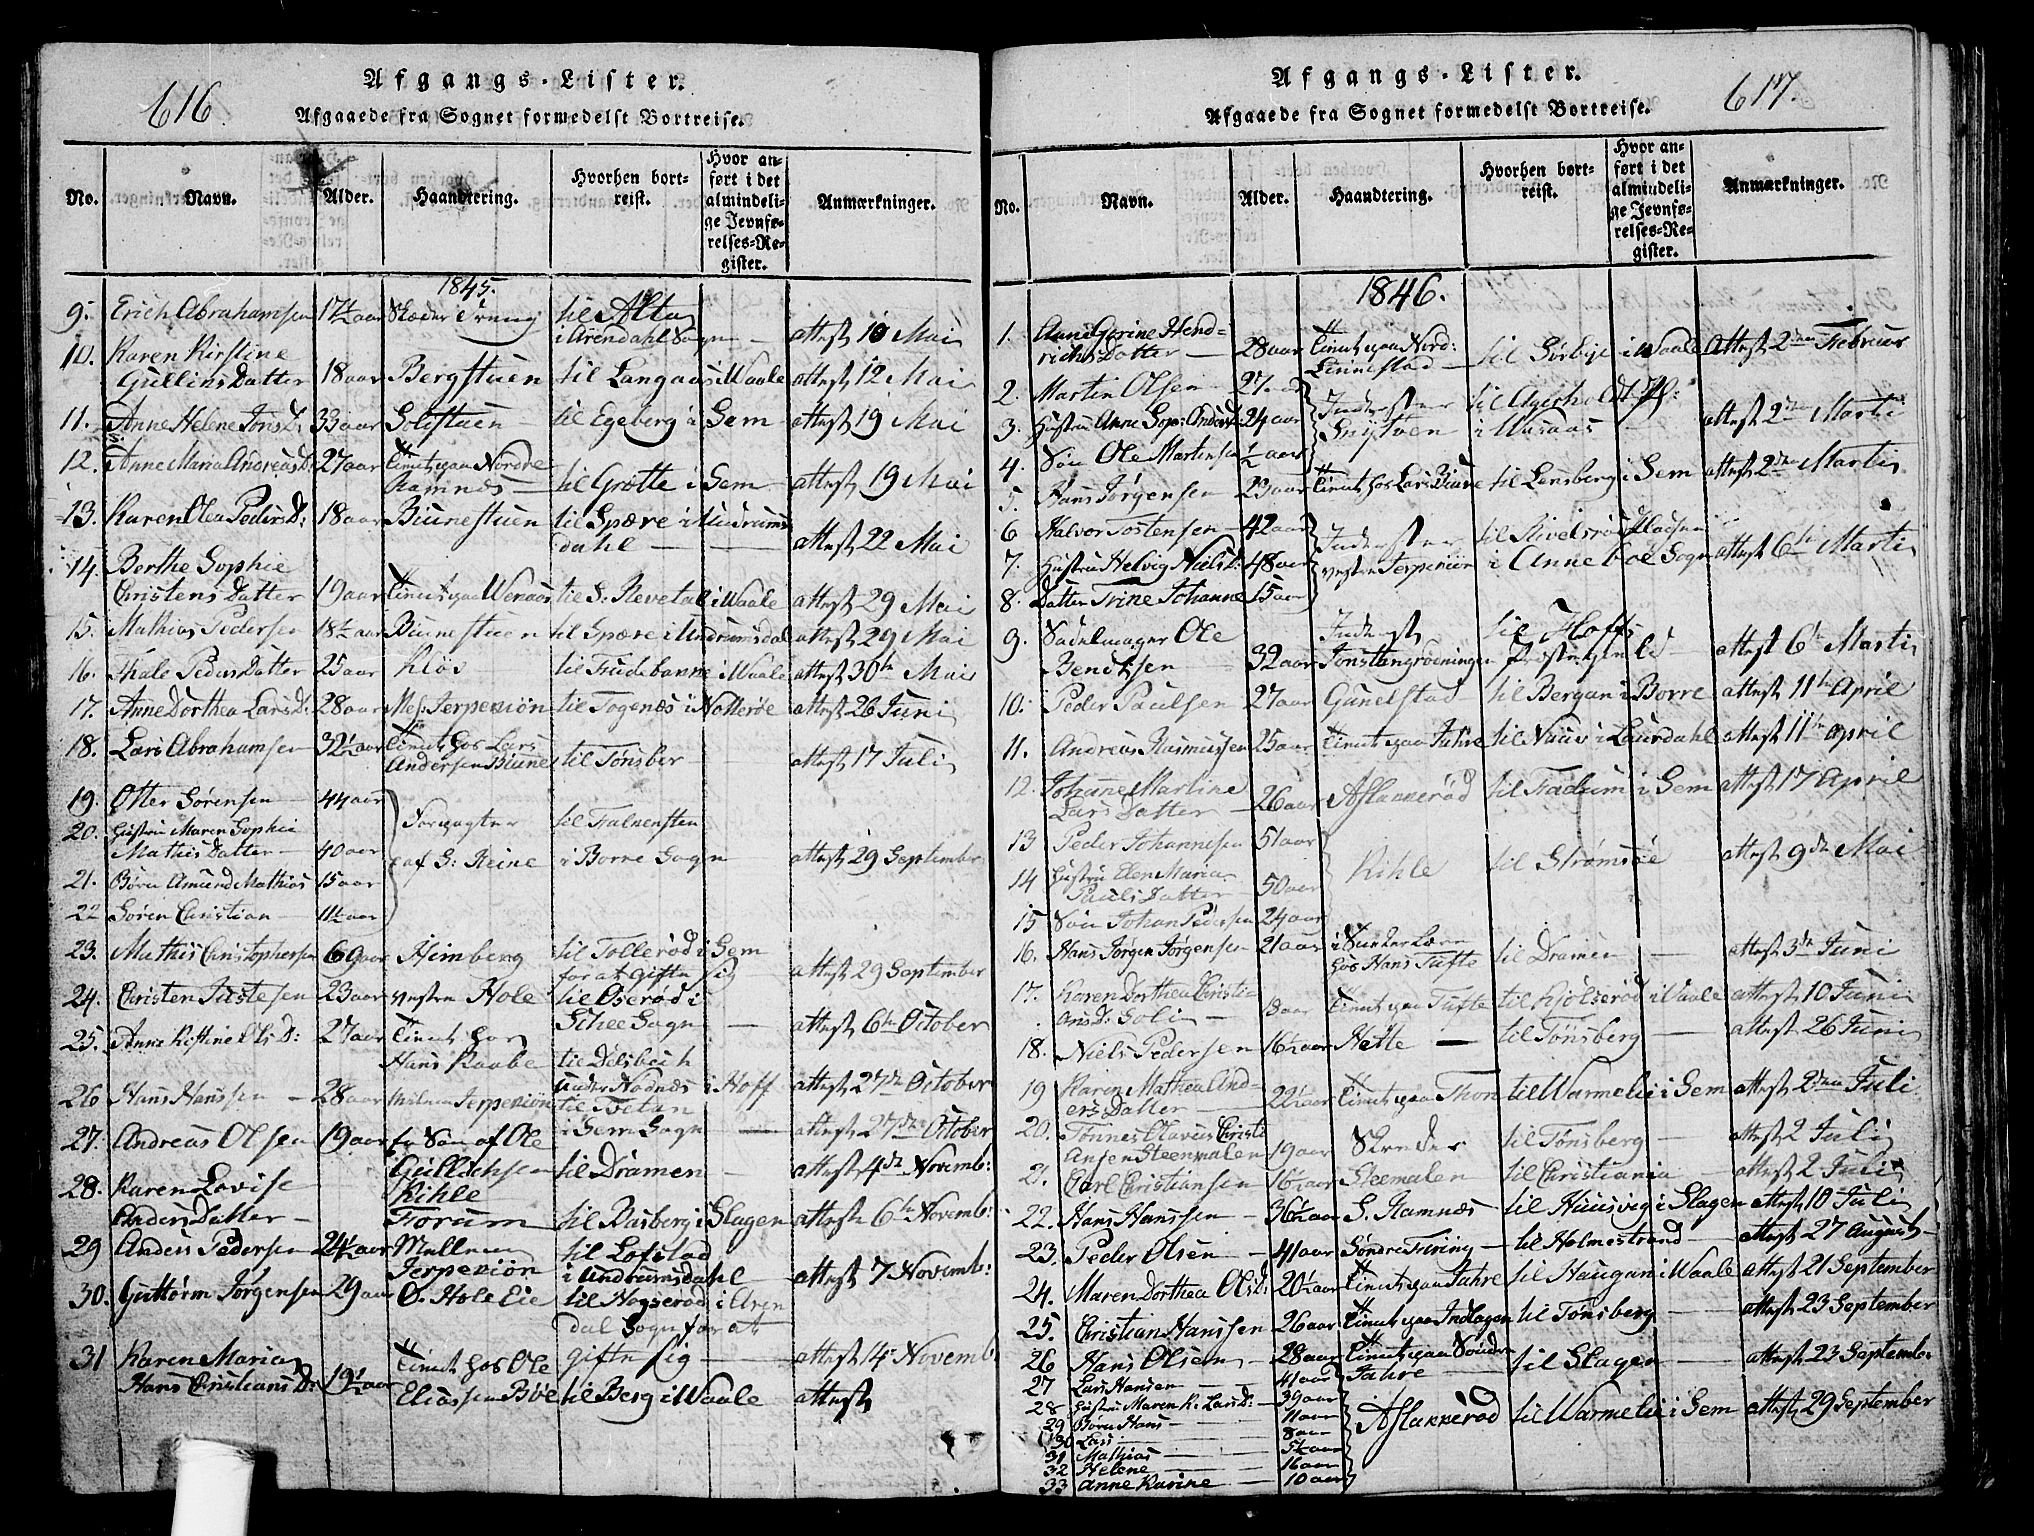 616.
Afgangs-Lister.
Afgaaede fra Sognet formedelst Bortreise.
No. Navn. Alder. Haandtering. Hvorhen bortreist. Hvor anført i det almindelige Jevnførelses-Register. Anmærkninger.
1845.
9. Erich Abrahamsen 17½ aar Skeder Treng til Alta i Arendahl Sogn attest 10 Mai
10. Karen Kirstine
Gullins Datter 18 aar Bergstuen til Langaas i Waale attest 12 Mai
11. Anne Helene Jens D: 33 aar Solstuen til Egeberg i Sem attest 19 Mai
12. Anne Maria Andreas D: 27 aar tient paa Nordre
Ramnes til Grette i Sem attest 19 Mai
13. Karen Olea Peders D: 18 aar Biunestuen til Spære i Undrumsdahl attest 22 Mai
14. Berthe Sophie
Christens Datter 19 aar tient paa Wenaas til S. Revetal i Waale attest 29 Mai
15. Mathias Pedersen 18½ aar Biunestuen til Spære i Undrumsdal attest 29 Mai
16. Thale Peders Datter 25 aar Kløv til Trudebakke i Waale attest 30te Mai
17. Anne Dorthea Lars D: 28 aar Mel. Jerpeniøn til Togenæs i Notterøe attest 26 Juni
18. Lars Abrahamsen 32½ aar tient hos Lars
Andersen Biune til Tønsber attest 17 Juli
19. Otter Sørensen 44 aar
20. Hustru Maren Sophie
Mathis Datter 40 aar Forpagter af S: Reine til Falkensten i Borre Sogn attest 29 September
21. Børn Amund Mathias 15 aar
22 Søren Christian 11½ aar
23. Mathis Christophersen 69 aar Himberg til Tollerød i Sem
for at gifte sig attest 29 September
24. Christen Justesen 23 aar vestre Hole til Oserød i
Schee Sogn attest 6te October
25. Anne Kistine Ols D: 27 aar tient hos
Hans Raabe til Dilsbech
under Hodnes i Hoff attest 27de October
26 Hans Hanssen 28 aar mellem Jerpeniøn til Tvetan
i Sem Sogn attest 27de October
27. Andreas Olsen 19 aar fr Søn af Ole
Gullichsen
Kihle til Dramen attest 4de Novemb:
28. Karen Lovise
Anders Datter Forum til Rasberg i Slagen attest 6te Novemb:
29 Anders Pedersen 24½ aar Mellem
Jerpeniøn til Lofstad
i Undrumsdahl attest 7 Novemb:
30. Guttorm Jørgensen 29 aar O. Hole Eie til Hogserød i Aren
dal Sogn for at
gifte sig attest 14 Novemb
31 Karen Maria
Hans Christians D: 19½ aar tient hos Ole
Eliassen Bøe til Berg i Waale attest
617.
Afgangs-Lister.
Afgaaede fra Sognet formedelst Bortreise.
No. Navn. Alder. Haandtering. Hvorhen bortreist. Hvor anført i det almindelige Jevnførelses-Register. Anmærkninger.
1846.
1. Anne Gurine Hend-
richs Datter 28 aar tient paa Nord:
Linnestad til Sørbye i Waale Attest 2den Februar
2. Martin Olsen 27. aar
3. Hustru Anne Soph: Anders D: 24 aar Inderster Snytven til Agerholdt Pl: i Wasaas attest 2den Marti
4. Søn Ole Martinsen ½ aar
5. Hans Jørgensen 23 aar tient hos Lars Biune til Lensberg i Sem attest 2den Marti
6 Halvor Tostensen 42 aar
7. Hustru Helvig Niels D: 48 aar Inderster vestre Jerpeniøn til Kivelsrød Pladsen i Anneboe Sogn attest 6te Marti
8. Datter Trine Johanne 15 aar
9. Sadelmager Ole
Bendtsen 32 aar Inderst
Jonstangrøeningen til Hoffs
Præstegield attest 6te Marti
10. Peder Paulsen 27 aar Gunelstad til Bergan i Borre attest 11te April
11. Andreas Rasmussen 25 aar tient paa Jahre til Nauv i Laurdahl attest 11te April
12. Johanne Martine
Lars Datter 26 aar Aslakkerød til Fadum i Sem attest 17 April
13 Peder Johannesen 51 aar
14 Hustru Elen Maria
Pauls Datter 50 aar Kihle til Strømsøe attest 9de Mai
15 Søn Johan Pedersen 24 aar
16. Hans Jørgen Jørgensen 21 aar i Smeder Lære
hos Hans Tufte til Dramen attest 3de Juni
17. Karen Dorthea Christi-
ans D: Solie 18 aar tient paa Tufte til Kjølserød i Waale attest 10 Juni
18. Niels Pedersen 16½ aar Hette til Tønsberg attest 26 Juni
19 Karen Mathea And-
ers Datter 22½ aar tient paa Thon til Warmelie i Sem attest 2den Juli
20. Tønnes Olavus Christi
ansen Steenmalen 19 aar Skreder til Tønsberg attest 2 Juli
21. Carl Christiansen 16½ aar Steemalen til Christiania attest 2 Juli
22. Hans Hanssen 36½ aar S. Ramnæs til Huusvig i Slagen attest 10 Juli
23. Peder Olsen 41 aar Søndre Firing til Holmestrand attest 27 August
24. Maren Dorthea Ols D: 20½ aar tient paa Jahre til Haugan i Waale attest 21 September
25. Christian Hanssen 26 aar tient paa Indlagen til Tønsberg attest 23 September
26 Hans Olsen 28 aar tient paa Søndre
Jahre til Slagen attest 23 September
27 Lars Hansen 41 aar
28 Hustru Maren K. Lars D: 39 aar Aslakkerød til Warmelie i Sem attest 29 September
29 Børn Hans 11 aar
30 Lars 8 aar
31 Mathias 5½ aar
32 Helene 16 aar
33 Anne Karine 10 aar